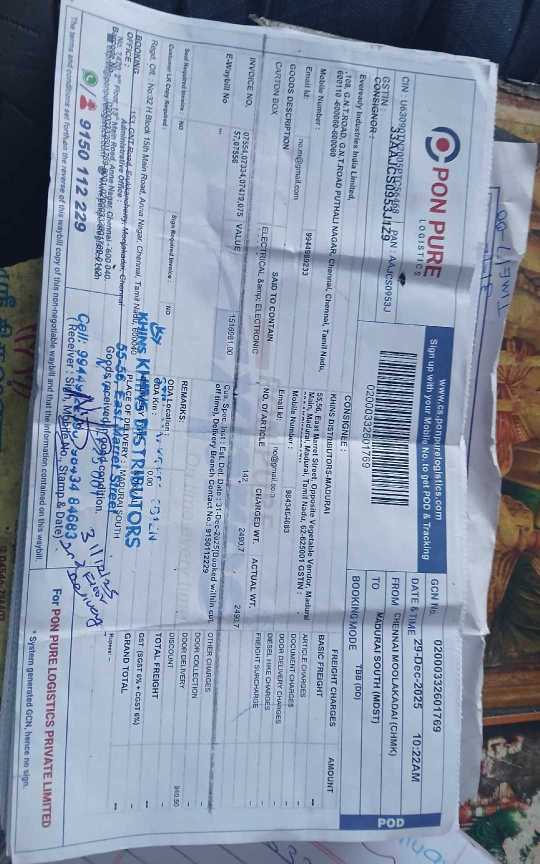 PON PURE
LOGISTICS
www.cs.ponpurelogistics.com
Sign up with your Mobile No. to get POD & Tracking
02000332601769
GCN No. 02000332601769
DATE & TIME 29-Dec-2025 10:22AM
FROM CHENNAI MOOLAKADAI (CHMK)
TO MADURAI SOUTH (MDST)
BOOKING MODE TBB (DD)
POD
GSTIN : 33AAJCS0953J1Z9 PAN : AAJCS0953J
CONSIGNOR :
Eveready Industries India Limited,
108, G.N.T.ROAD, G.N.T.ROAD PUTHALI NAGAR, Chennai, Chennai, Tamil Nadu,
600110 -600060-600060
Mobile Number : 9944989233
Email Id: no.m@gmail.com
CONSIGNEE :
KHINS DISTRIBUTORS-MADURAI
55,56, East Marret Street, Opposite Vegetable Vendor, Madurai
Main, Madurai, Madurai, Tamil Nadu, 62-625001 GSTIN :
Mobile Number :
Email Id: no@gmail.co
FREIGHT CHARGES AMOUNT
BASIC FREIGHT --
ARTICLE CHARGES
DOCUMENT CHARGES
DOOR DELIVERY CHARGES
DIESEL HIKE CHARGES
FREIGHT SURCHARGE
OTHER CHARGES
DOOR COLLECTION
DOOR DELIVERY
DISCOUNT
TOTAL FREIGHT --
GST (SGST 6% + CGST 6%) --
GRAND TOTAL --
GOODS DESCRIPTION SAID TO CONTAIN NO. OF ARTICLE CHARGED WT. ACTUAL WT.
CARTON BOX ELECTRICAL &amp; ELECTRONIC 142
INVOICE NO. VALUE 1516981.00
E-Waybill No --
Cus. Spec. Inst : Est.Del. Date : 31-Dec-2025(Booked within cut
off time), Delivery Branch Contact No.: 9150112229
REMARKS:
Seal Required Invoice : NO
Sign Required Invoice : NO
Customer LR Copy Required
ODA Location :
ODA Km : 0.00
PLACE OF DELIVERY : MADURAI SOUTH
Regd. Off. : No:32 H Block 15th Main Road, Anna Nagar, Chennai, Tamil Nadu, 600040
BOOKING
OFFICE :
Administrative Office :
KHINS DISTRIBUTORS
55-56, East Marret Street
Goods received in good condition.
31/12/25
9150 112 229
Receiver : Sign, Mobile No., Stamp & Date)
Rupees --
For PON PURE LOGISTICS PRIVATE LIMITED
* System generated GCN, hence no sign.
The terms and conditions set forth in the reverse of this waybill copy of this non-negotiable waybill and that the information contained on this waybill.